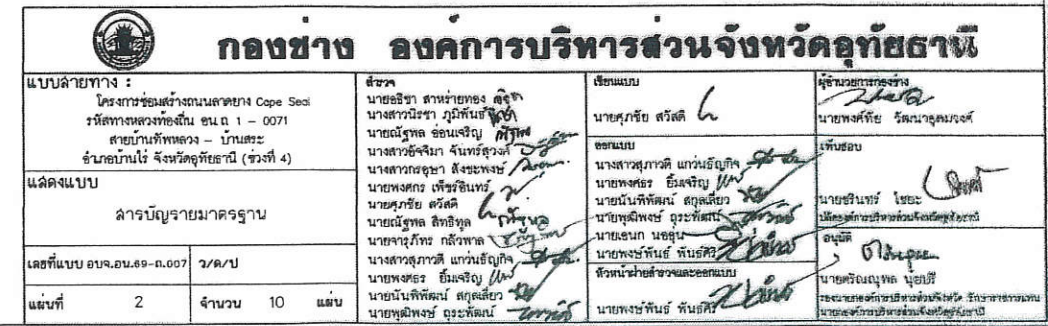 กองช่าง องค์การบริหารส่วนจังหวัดอุทัยธานี
แบบสายทาง :
โครงการซ่อมสร้างถนนลาดยาง Cape Seal
รหัสทางหลวงท้องถิ่น อน.ถ 1 - 0071
สายบ้านทัพหลวง - บ้านสระ
อำเภอบ้านไร่ จังหวัดอุทัยธานี (ช่วงที่ 4)
แสดงแบบ
สารบัญรายมาตรฐาน
เลขที่แบบ อบจ.อน.69-ถ.007 ว/ด/ป
แผ่นที่ 2 จำนวน 10 แผ่น
สำรวจ
นายอธิชา สาหร่ายทอง
นางสาวนิรชา ภูมิพันธ์
นายณัฐพล อ่อนเจริญ
นางสาวอัจจิมา จันทร์สุวงค์
นางสาวกรอุษา สังขะพงษ์
นายพงศกร เพ็ชรอินทร์
นายศุภชัย สวัสดิ์
นายณัฐพล สิทธิกูล
นายจารุภัทร กลัวพาล
นางสาวสุภาวดี แกว่นธัญกิจ
นายพงศธร ยิ้มเจริญ
นายนันพิพัฒน์ สกุลเลี่ยว
นายพุฒิพงษ์ ถุระพัฒน์
เขียนแบบ
นายศุภชัย สวัสดิ์
ออกแบบ
นางสาวสุภาวดี แกว่นธัญกิจ
นายพงศธร ยิ้มเจริญ
นายนันพิพัฒน์ สกุลเลี่ยว
นายพุฒิพงษ์ ถุระพัฒน์
นายเอนก
นายพงษ์พันธ์ พันธ์ศิริ
หัวหน้าฝ่ายสำรวจและออกแบบ
นายพงษ์พันธ์ พันธ์ศิริ
ผู้อำนวยการกองช่าง
นายพงศ์ทัย วัฒนาอุดมวงศ์
เห็นชอบ
นายชรินทร์ ไชยะ
ปลัดองค์การบริหารส่วนจังหวัดอุทัยธานี
อนุมัติ
รองนายกองค์การบริหารส่วนจังหวัด รักษาราชการแทน
นายกองค์การบริหารส่วนจังหวัดอุทัยธานี